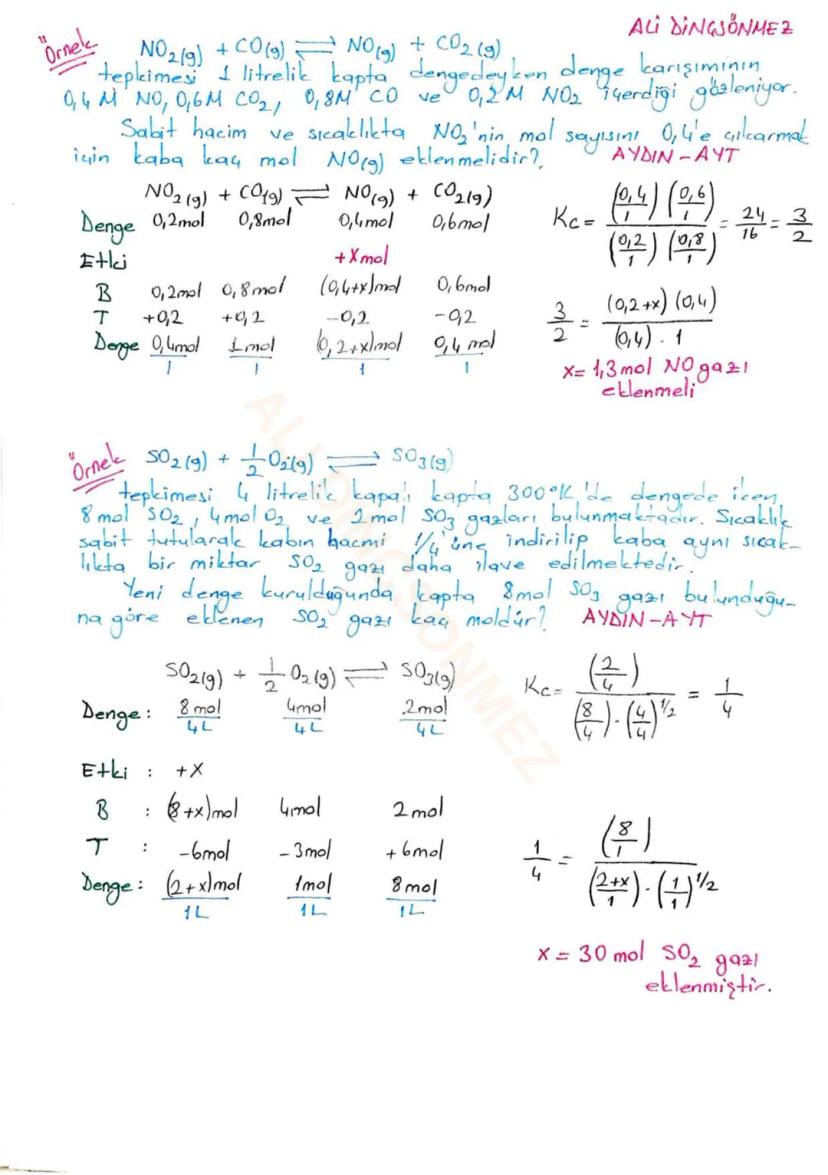 ALİ DİNÇSÖNMEZ
Örnek NO₂(g) + CO(g) ⇌ NO(g) + CO₂(g)
tepkimesi 1 litrelik kapta dengedeyken denge karışımının
0,4 M NO, 0,6M CO₂, 0,8M CO ve 0,2 M NO₂ içerdiği gözleniyor.
Sabit hacim ve sıcaklıkta NO₂'nin mol sayısını 0,4'e çıkarmak
için kaba kaç mol NO(g) eklenmelidir? AYDIN-AYT
NO₂(g) + CO(g) ⇌ NO(g) + CO₂(g)
Denge 0,2mol 0,8mol 0,4mol 0,6mol
Kc = (0,4/1) (0,6/1) / (0,2/1) (0,8/1) = 24/16 = 3/2
Etki +xmol
B 0,2mol 0,8mol (0,4+x)mol 0,6mol
T +0,2 +0,2 -0,2 -0,2
Denge 0,4mol/1 1mol/1 (0,2+x)mol/1 0,4 mol/1
3/2 = (0,2+x) (0,4) / (0,4) . 1
x= 1,3 mol NO gazı
eklenmeli
Örnek SO₂(g) + 1/2 O₂(g) ⇌ SO₃(g)
tepkimesi 4 litrelik kapalı kapta 300°K'de dengede iken
8 mol SO₂, 4mol O₂ ve 2mol SO₃ gazları bulunmaktadır. Sıcaklık
sabit tutularak kabın hacmi 1/4'üne indirilip kaba aynı sıcak-
lıkta bir miktar SO₂ gazı daha ilave edilmektedir.
Yeni denge kurulduğunda kapta 8mol SO₃ gazı bulunduğu-
na göre eklenen SO₂ gazı kaç moldür? AYDIN-AYT
SO₂(g) + 1/2 O₂(g) ⇌ SO₃(g)
Denge: 8mol/4L 4mol/4L 2mol/4L
Kc= (2/4) / (8/4).(4/4)^1/2 = 1/4
Etki : +x
B : (8+x)mol 4mol 2mol
T : -6mol -3mol +6mol
Denge: (2+x)mol/1L 1mol/1L 8mol/1L
1/4 = (8/1) / (2+x/1).(1/1)^1/2
x = 30 mol SO₂ gazı
eklenmiştir.
ALİ DİNÇSÖNMEZ